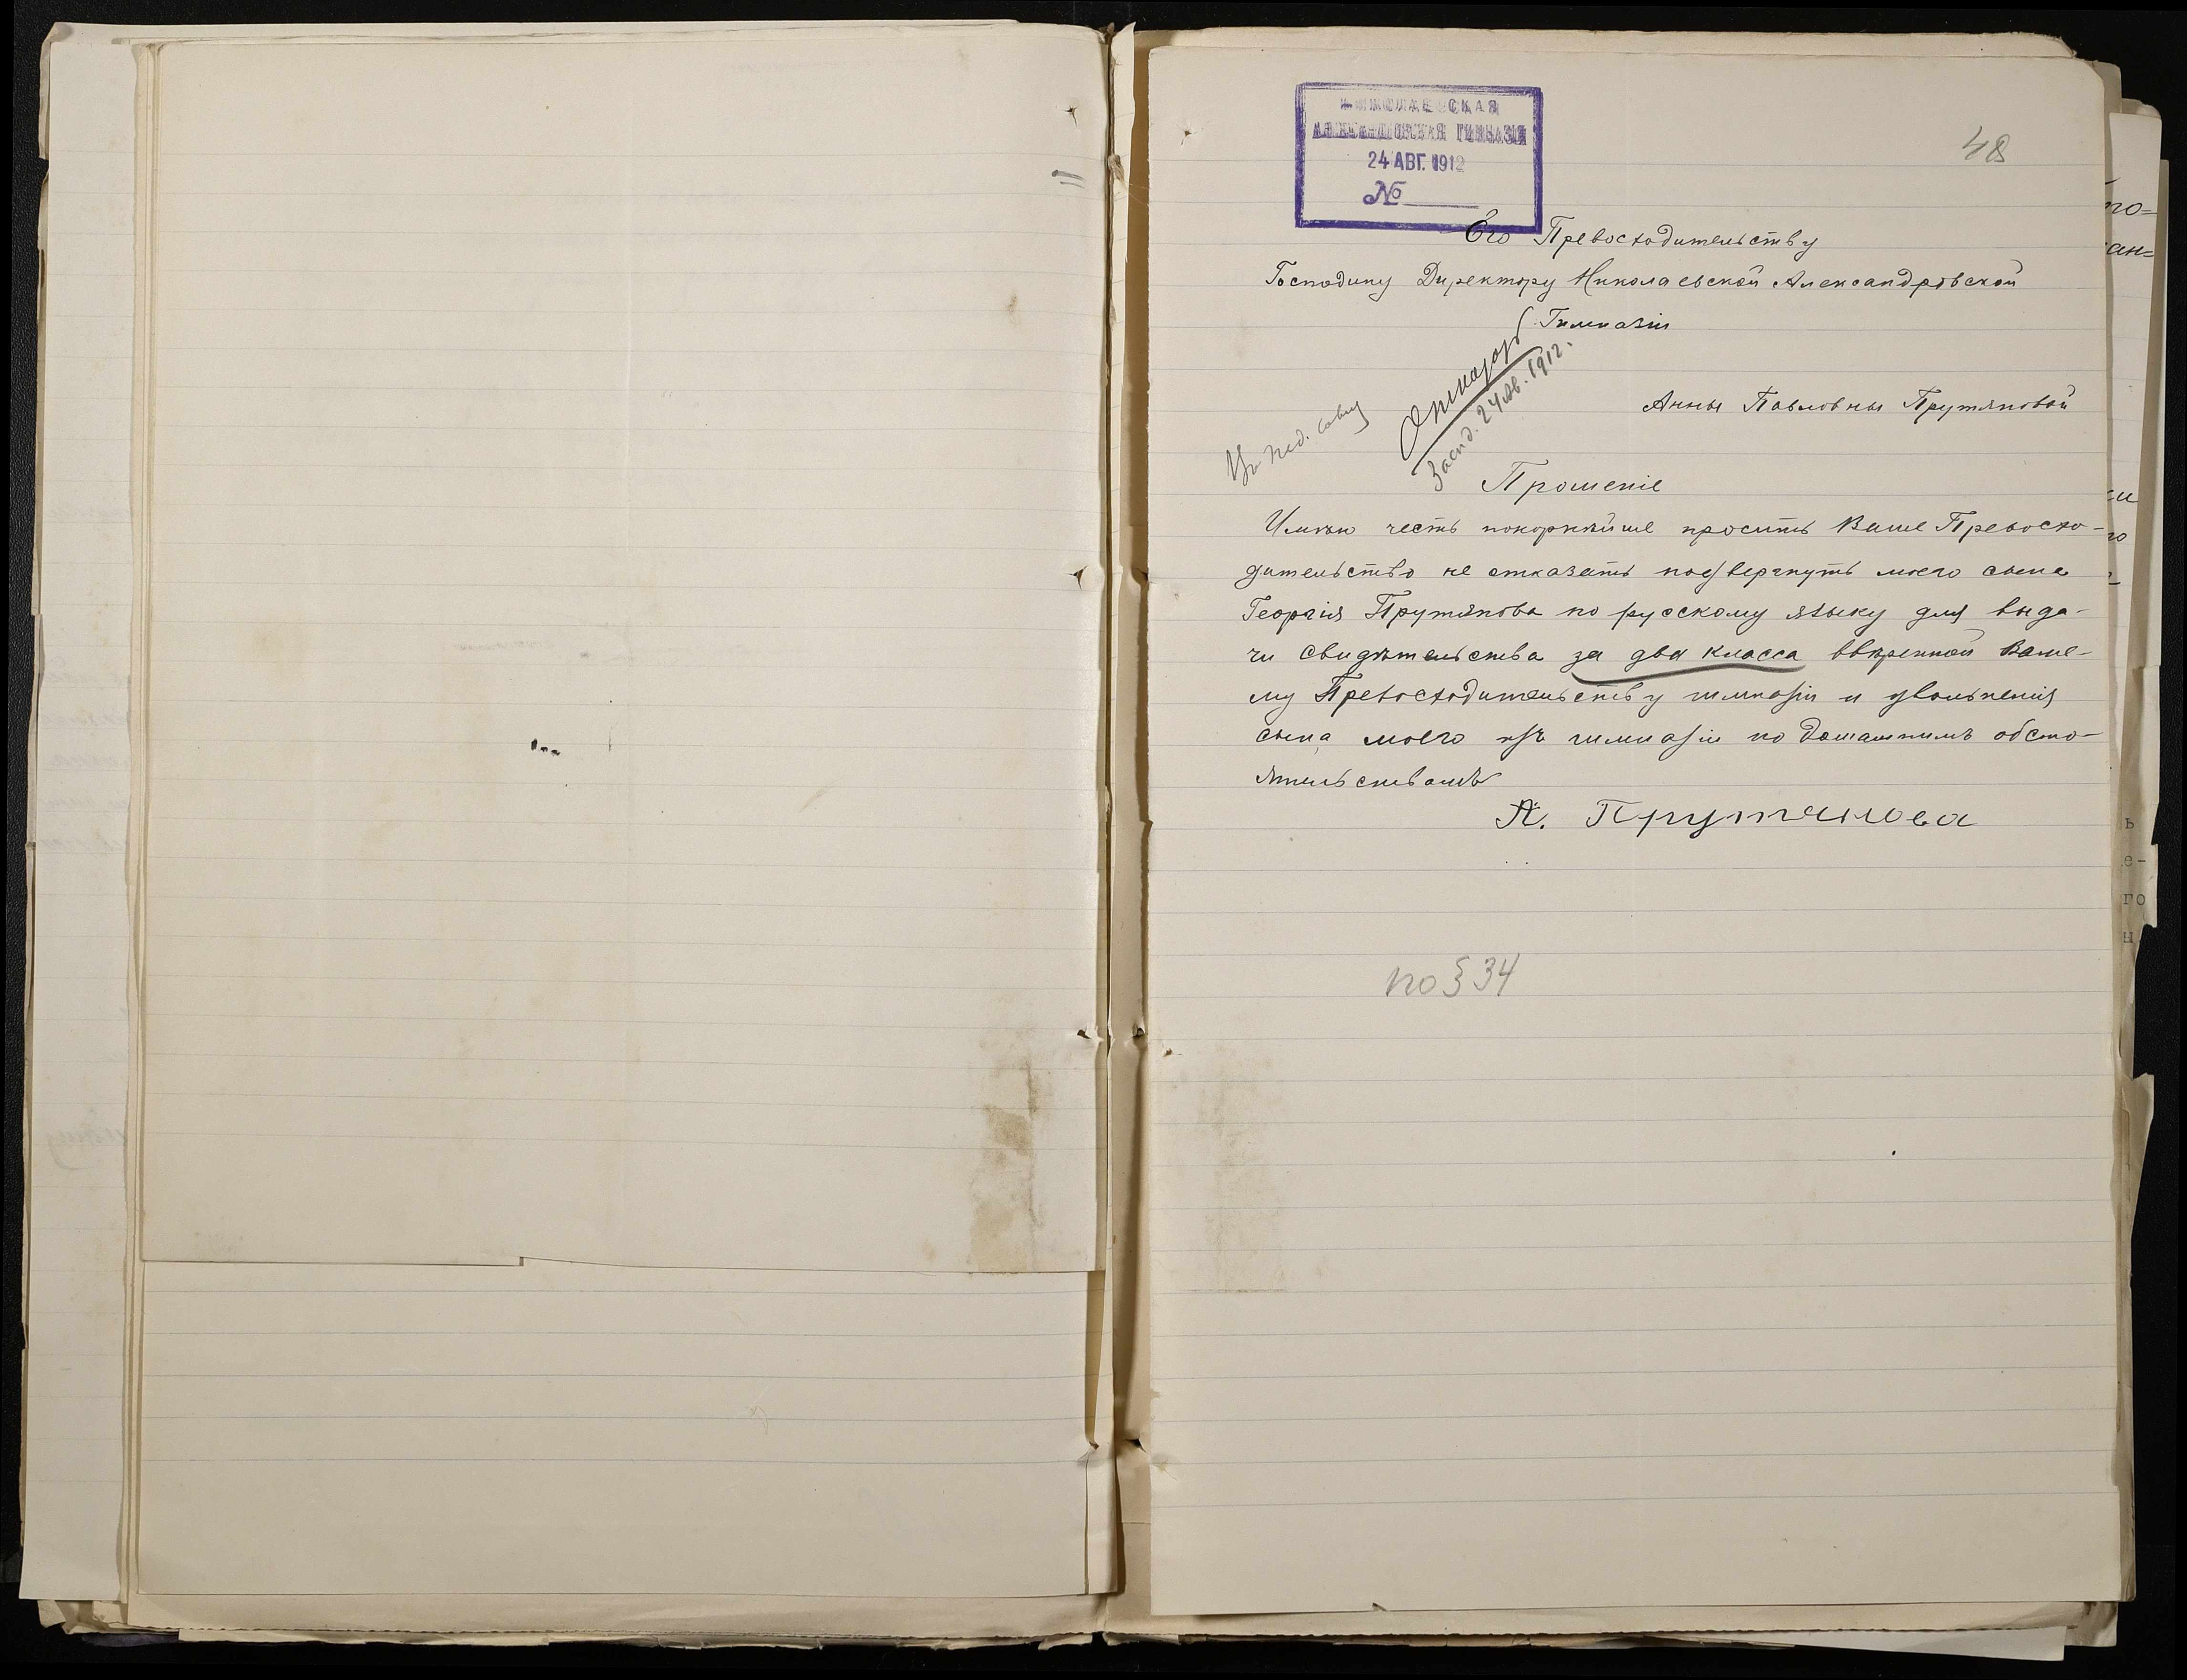 НИКОЛАЕВСКАЯ
АЛЕКСАНДРОВСКАЯ ГИМНАЗІЯ
24 АВГ. 1912
№
48
Его Превосходительству
Господину Директору Николаевской Александровской
Гимназіи
Анны Павловны Прутяновой
Въ пед. совѣ
Отказать
Засѣд. 24 Ав. 1912.
Прошеніе
Имѣю честь покорнѣйше просить Ваше Превосхо-
дительство не отказать подвергнуть моего сына
Георгія Прутянова по русскому языку для выда-
чи свидѣтельства за два класса ввѣренной Ваше-
му Превосходительству гимназіи и увольненія
сына моего изъ гимназіи по домашнимъ обсто-
ятельствамъ
А. Прутянова
по § 34